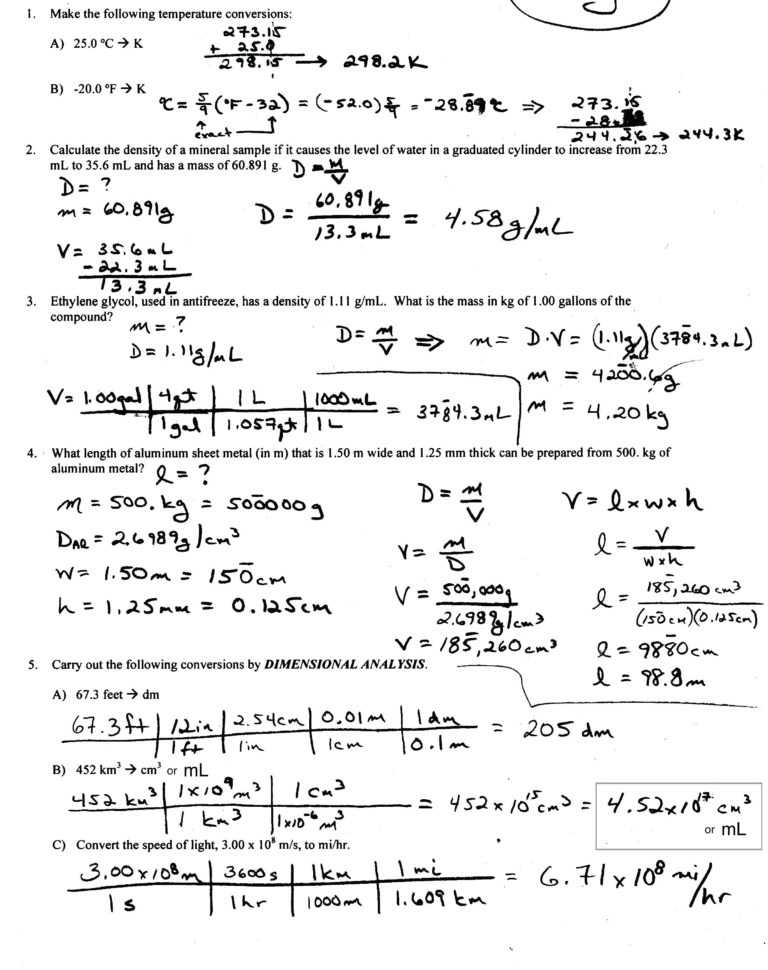 1. Make the following temperature conversions:
A) 25.0 °C → K
273.15
+ 25.0
298.15 → 298.2K
B) -20.0 °F → K
°C = 5/9 (°F - 32) = (-52.0) 5/9 = -28.89 °C ⇒
exact
273.15
- 28.
244.26 → 244.3K
2. Calculate the density of a mineral sample if it causes the level of water in a graduated cylinder to increase from 22.3
mL to 35.6 mL and has a mass of 60.891 g. D = M/V
D = ?
m = 60.891g
D = 60.891g / 13.3 mL = 4.58 g/mL
V = 35.6 mL
- 22.3 mL
13.3 mL
3. Ethylene glycol, used in antifreeze, has a density of 1.11 g/mL. What is the mass in kg of 1.00 gallons of the
compound?
m = ?
D = 1.11g/mL
D = m/V ⇒ m = D·V = (1.11g/mL)(3784.3mL)
m = 4200.6g
V = 1.00gal | 4qt | 1L | 1000mL = 3784.3mL
1gal | 1.057qt | 1L
m = 4.20 kg
4. What length of aluminum sheet metal (in m) that is 1.50 m wide and 1.25 mm thick can be prepared from 500. kg of
aluminum metal? l = ?
m = 500. kg = 500000g
D = m/V
V = l x w x h
DAl = 2.6989g/cm³
V = m/D
l = V / w x h
w = 1.50m = 150cm
V = 500,000g / 2.6989g/cm³
l = 185,260 cm³ / (150cm)(0.125cm)
h = 1.25mm = 0.125cm
V = 185,260cm³
l = 9880cm
l = 98.8m
5. Carry out the following conversions by DIMENSIONAL ANALYSIS.
A) 67.3 feet → dm
67.3ft | 12in | 2.54cm | 0.01m | 1dm = 205 dm
1ft | 1in | 1cm | 0.1m
B) 452 km³ → cm³ or mL
452 km³ | 1x10⁹m³ | 1cm³ = 452 x 10¹⁵cm³ = 4.52x10¹⁷ cm³
1 km³ | 1x10⁻⁶m³
or mL
C) Convert the speed of light, 3.00 x 10⁸ m/s, to mi/hr.
3.00x10⁸m | 3600s | 1km | 1mi = 6.71 x 10⁸ mi/hr
1s | 1hr | 1000m | 1.609 km